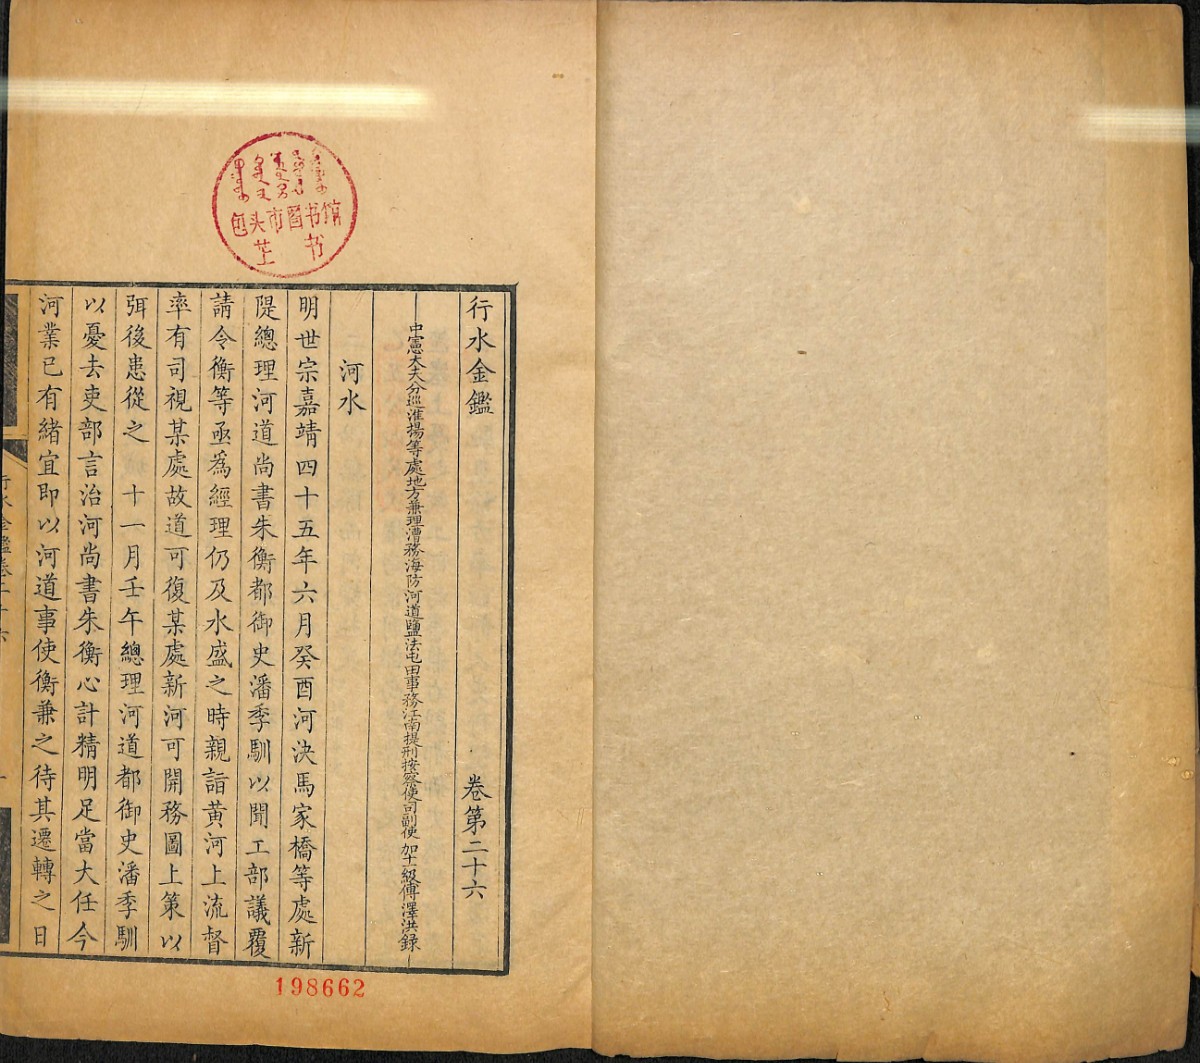 行水金鑑 卷第二十六
中憲大夫分巡淮揚等處地方兼理漕務海防河道鹽法屯田事務江南提刑按察使司副使加十一級傅澤洪錄
河水
明世宗嘉靖四十五年六月癸酉河決馬家橋等處新
隄總理河道尚書朱衡都御史潘季馴以聞工部議覆
請令衡等亟為經理仍及水盛之時親詣黃河上流督
率有司視某處故道可復某處新河可開務圖上策以
弭後患從之 十一月壬午總理河道都御史潘季馴
以憂去吏部言治河尚書朱衡心計精明足當大任今
河業已有緒宜即以河道事使衡兼之待其遷轉之日
行水金鑑卷二十六
包头市图书馆
书
198662